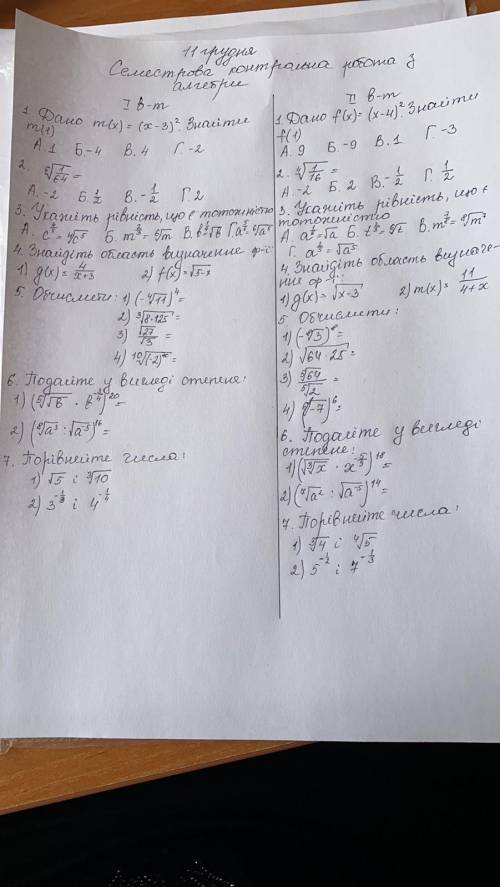 11 грудня
Семестрова контрольна робота з
алгебри
I в-т
1. Дано m(x) = (x-3)². Знайти
m(1)
А. 1 Б. -4 В. 4 Г. -2
2. ⁶√(1/64) =
А. -2 Б. 1/2 В. -1/2 Г. 2
3. Укажіть рівність, що є тотожністю
4. Знайдіть область визначення ф-ії:
1) g(x) = 4/(x+3) 2) f(x) = √(5-x)
5. Обчислити: 1) (-⁴√11)⁴ =
2) ³√(8·125) =
3) √27/√3 =
4) ¹⁰√(-2)¹⁰ =
6. Подайте у вигляді степеня:
7. Порівняйте числа:
1) √5 і ³√10
2) 3^(-1/3) і 4^(-1/4)
II в-т
1. Дано f(x) = (x-4)². Знайти
f(1)
А. 9 Б. -9 В. 1 Г. -3
2. ⁴√(1/16) =
А. -2 Б. 2 В. -1/2 Г. 1/2
3. Укажіть рівність, що є
тотожністю
4. Знайдіть область визначе-
ння ф-ії:
1) g(x) = √(x-3) 2) m(x) = 11/(4+x)
5. Обчислити:
2) √(64·25) =
3) ⁵√64/⁵√2 =
4) (⁶√-7)⁶ =
6. Подайте у вигляді
степеня:
7. Порівняйте числа:
1) ³√4 і ⁴√5
2) 5^(-1/2) і 7^(-1/3)